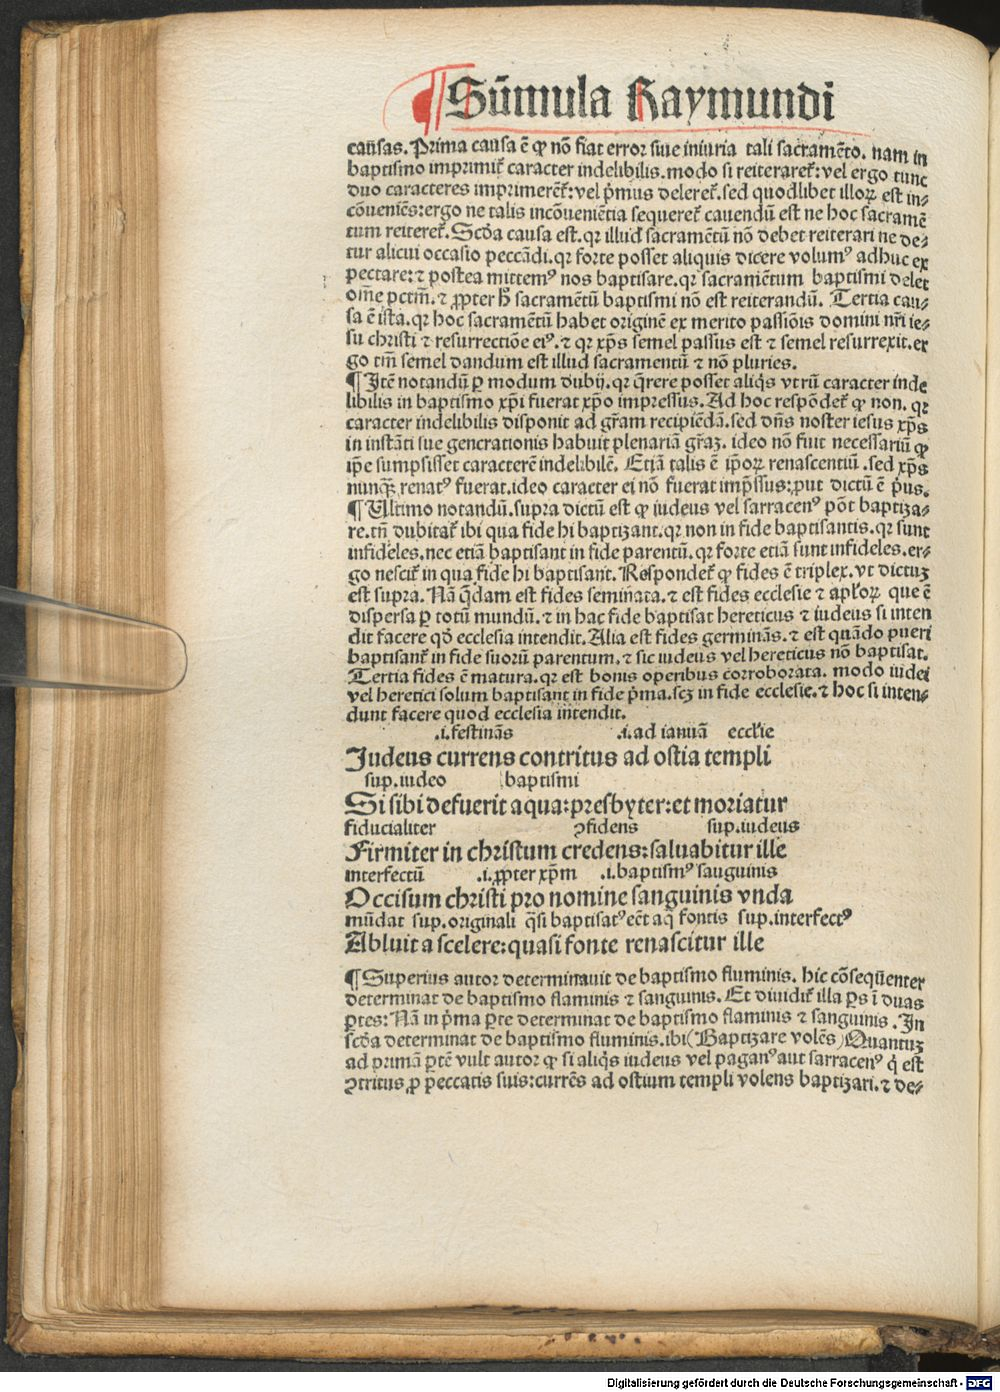 ¶ Sūmula Raymundi
causas. Prima causa ē ꝙ nō fiat error siue iniuria tali sacramēto. nam in
baptismo imprimit᷑ caracter indelibilis. modo si reiteraret᷑: vel ergo tunc
duo caracteres imprimerēt᷑: vel p̄mus deleret᷑. sed quodlibet illoꝝ est in⸗
cōueniēs: ergo ne talis incōueniētia sequeret᷑ cauendū est ne hoc sacramē
tum reiteret᷑. Scd̄a causa est. qꝛ illud sacramētū nō debet reiterari ne de⸗
tur alicui occasio peccādi. qꝛ forte posset aliquis dicere volumꝰ adhuc ex
pectare: ⁊ postea mittemꝰ nos baptisare. qꝛ sacramētum baptismi delet
om̄e pctm̄. ⁊ ꝓpter ħ sacramētū baptismi nō est reiterandū. Tertia cau⸗
sa ē ista. qꝛ hoc sacramētū habet originē ex merito passiōis domini nr̄i ie⸗
su christi ⁊ resurrectiōe eiꝰ. ⁊ qꝛ xp̄s semel passus est ⁊ semel resurrexit. er
go tm̄ semel dandum est illud sacramentū ⁊ nō pluries.
¶ Itē notandū ꝑ modum dubij. qꝛ q̄rere posset aliq̄s vtrū caracter inde
libilis in baptismo xp̄i fuerat xp̄o impressus. Ad hoc respōdet᷑ ꝙ non. qꝛ
caracter indelibilis disponit ad gr̄am recipiēdā. sed dn̄s noster iesus xp̄s
in instāti sue generationis habuit plenariā gr̄aꝫ. ideo nō fuit necessariū ꝙ
ip̄e sumpsisset caracterē indelibilē. Etiā talis ē ip̄oꝝ renascentiū. sed xp̄s
nunqꝫ renatꝰ fuerat. ideo caracter ei nō fuerat imp̄ssus: ꝓut dictū ē p̄us.
¶ Ultimo notandū. supra dictū est ꝙ iudeus vel sarracenꝰ pōt baptiza⸗
re. tn̄ dubitat᷑ ibi qua fide hi baptizant. qꝛ non in fide baptisantis. qꝛ sunt
infideles. nec etiā baptisant in fide parentū. qꝛ forte etiā sunt infideles. er⸗
go nescit᷑ in qua fide hi baptisant. Respondet᷑ ꝙ fides ē triplex. vt dictuꝫ
est supra. Nā q̄dam est fides seminata. ⁊ est fides ecclesie ⁊ apl'oꝝ que ē
dispersa ꝑ totū mundū. ⁊ in hac fide baptisat hereticus ⁊ iudeus si inten
dit facere qd̄ ecclesia intendit. Alia est fides germinās. ⁊ est quādo pueri
baptisant᷑ in fide suorū parentum. ⁊ sic iudeus vel hereticus nō baptisat.
Tertia fides ē matura. qꝛ est bonis operibus corroborata. modo iudei
vel heretici solum baptisant in fide p̄ma. scꝫ in fide ecclesie. ⁊ hoc si inten⸗
dunt facere quod ecclesia intendit.
.i. festinās .i. ad ianuā eccl'ie
Judeus currens contritus ad ostia templi
sup. iudeo baptismi
Si sibi defuerit aqua: presbyter: et moriatur
fiducialiter ꝯfidens sup. iudeus
Firmiter in christum credens: saluabitur ille
interfectū .i. ꝓpter xp̄m .i. baptismꝰ sanguinis
Occisum christi pro nomine sanguinis vnda
mūdat sup. originali q̄si baptisatꝰ eēt aq̄ fontis sup. interfectꝰ
Abluit a scelere: quasi fonte renascitur ille
¶ Superius autor determinauit de baptismo fluminis. hic cōseqūenter
determinat de baptismo flaminis ⁊ sanguinis. Et diuidit᷑ illa ꝑs ī duas
ꝑtes: Nā in p̄ma ꝑte determinat de baptismo flaminis ⁊ sanguinis. In
scd̄a determinat de baptismo fluminis. ibi (Baptizare volēs) Quantuꝫ
ad primā ꝑtē vult autor ꝙ si aliq̄s iudeus vel paganꝰ aut sarracenꝰ q̇ est
ꝯtritus ꝓ peccatis suis: currēs ad ostium templi volens baptizari. ⁊ de⸗
Digitalisierung gefördert durch die Deutsche Forschungsgemeinschaft - DFG